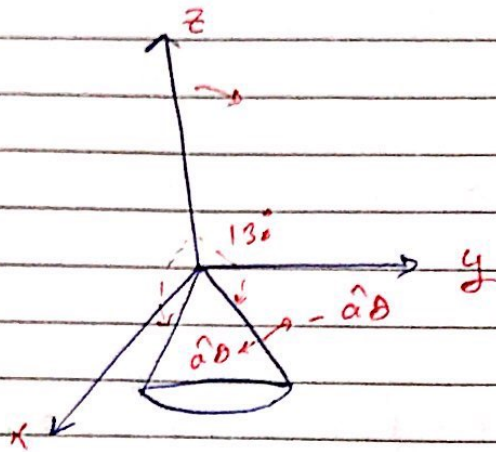 z
130°
y
âθ
- âθ
x